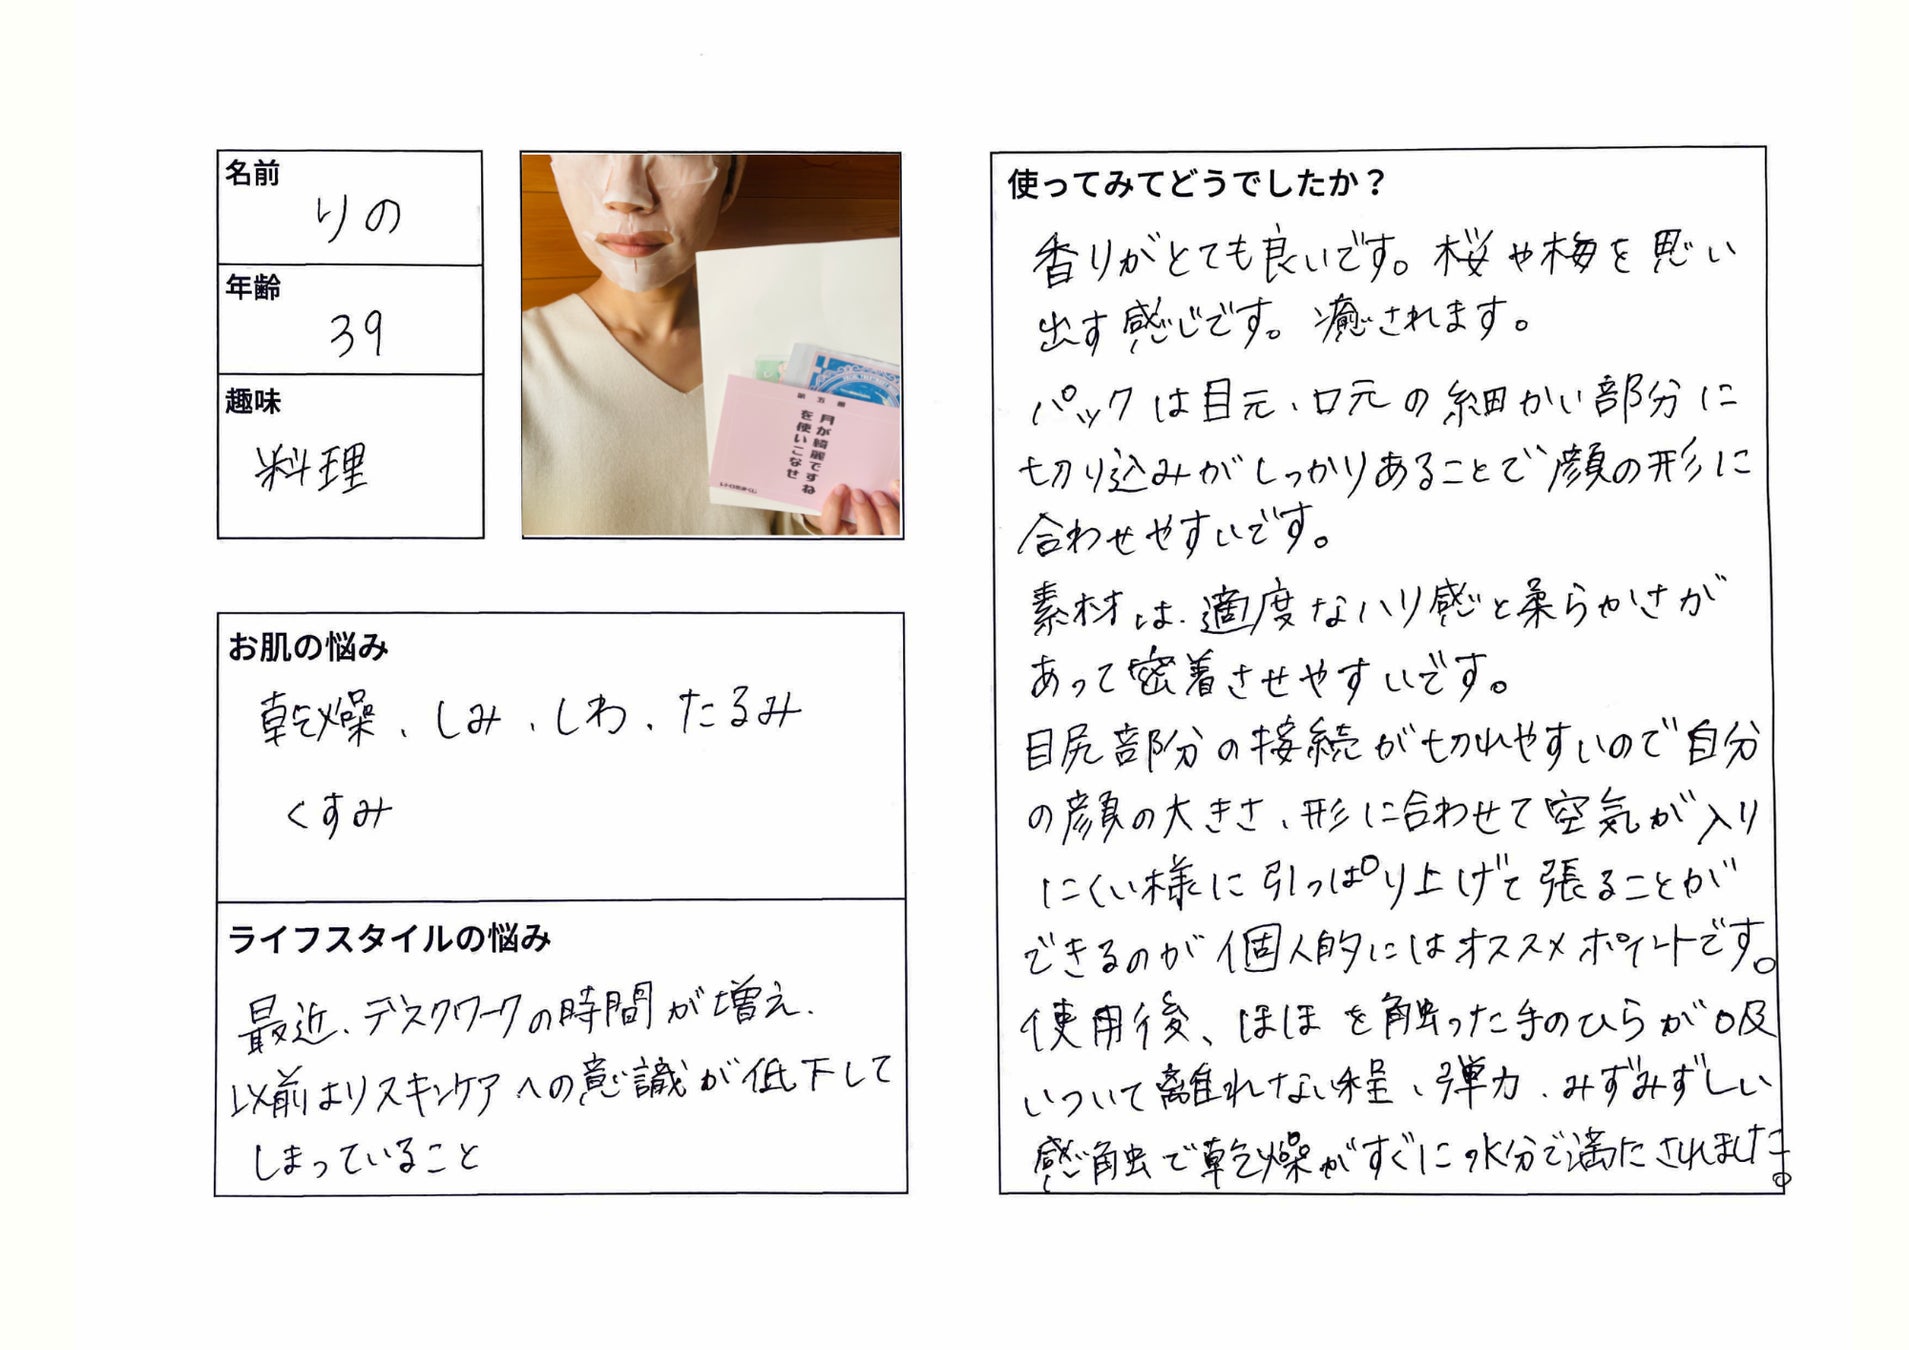 名前
りの
年齢
39
趣味
料理
月が綺麗ですね
を使いこなせ
お肌の悩み
乾燥、しみ、しわ、たるみ
くすみ
ライフスタイルの悩み
最近、デスクワークの時間が増え、
以前よりスキンケアへの意識が低下して
しまっていること
使ってみてどうでしたか？
香りがとても良いです。桜や梅を思い
出す感じです。癒されます。
パックは目元、口元の細かい部分に
切り込みがしっかりあることで顔の形に
合わせやすいです。
素材は、適度なハリ感と柔らかさが
あって密着させやすいです。
目尻部分の接続が切れやすいので自分
の顔の大きさ、形に合わせて空気が入り
にくい様に引っぱり上げて張ることが
できるのが個人的にはオススメポイントです。
使用後、ほほを触った手のひらが吸
いついて離れない程、弾力、みずみずしい
感触で乾燥がすぐに水分で満たされました。